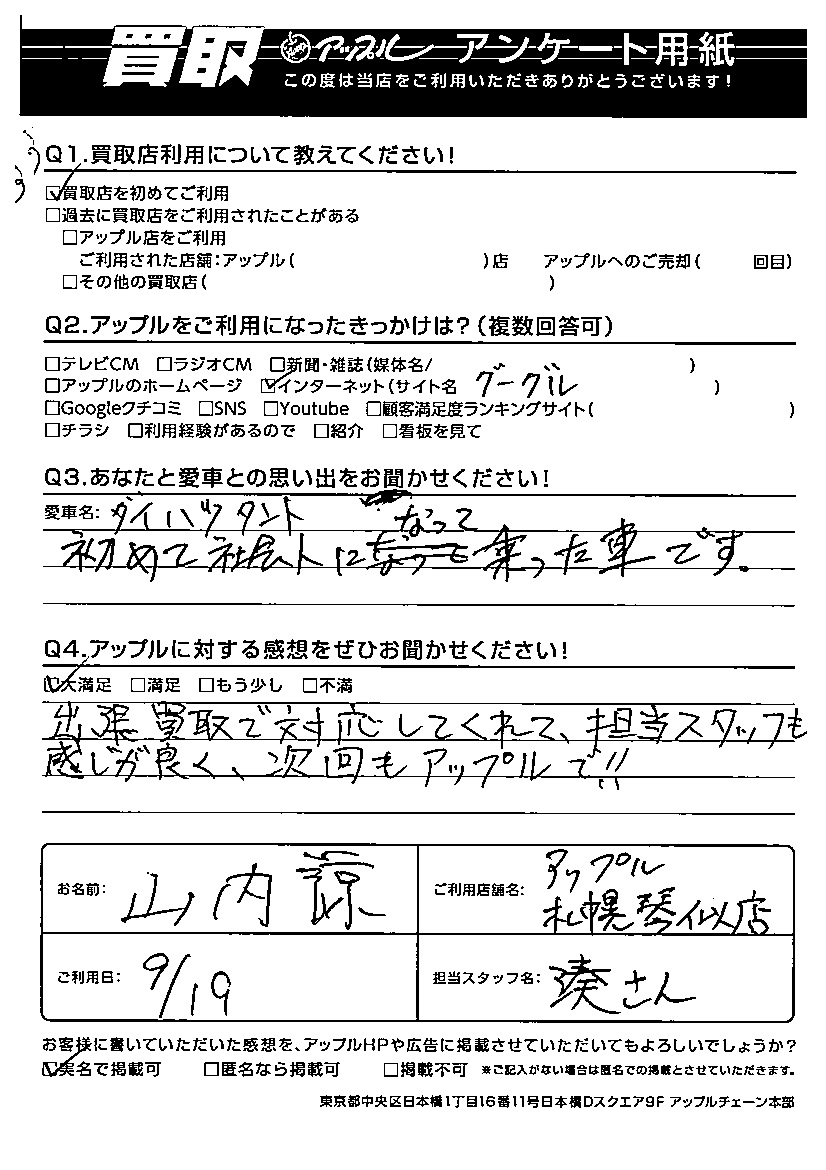 買取 アップル アンケート用紙
この度は当店をご利用いただきありがとうございます!
Q1.買取店利用について教えてください!
☑買取店を初めてご利用
□過去に買取店をご利用されたことがある
□アップル店をご利用
ご利用された店舗:アップル( )店 アップルへのご売却( 回目)
□その他の買取店( )
Q2.アップルをご利用になったきっかけは?(複数回答可)
□テレビCM □ラジオCM □新聞・雑誌(媒体名/ )
□アップルのホームページ ☑インターネット(サイト名 グーグル )
□Googleクチコミ □SNS □Youtube □顧客満足度ランキングサイト( )
□チラシ □利用経験があるので □紹介 □看板を見て
Q3.あなたと愛車との思い出をお聞かせください!
愛車名: ダイハツタント
初めて社会人になって乗った車です。
Q4.アップルに対する感想をぜひお聞かせください!
☑大満足 □満足 □もう少し □不満
出張買取で対応してくれて、担当スタッフも
感じが良く、次回もアップルで!!
お名前: 山内 諒
ご利用店舗名: アップル
札幌琴似店
ご利用日: 9/19
担当スタッフ名: 湊さん
お客様に書いていただいた感想を、アップルHPや広告に掲載させていただいてもよろしいでしょうか?
☑実名で掲載可 □匿名なら掲載可 □掲載不可 ※ご記入がない場合は匿名での掲載とさせていただきます。
東京都中央区日本橋1丁目16番11号日本橋Dスクエア9F アップルチェーン本部